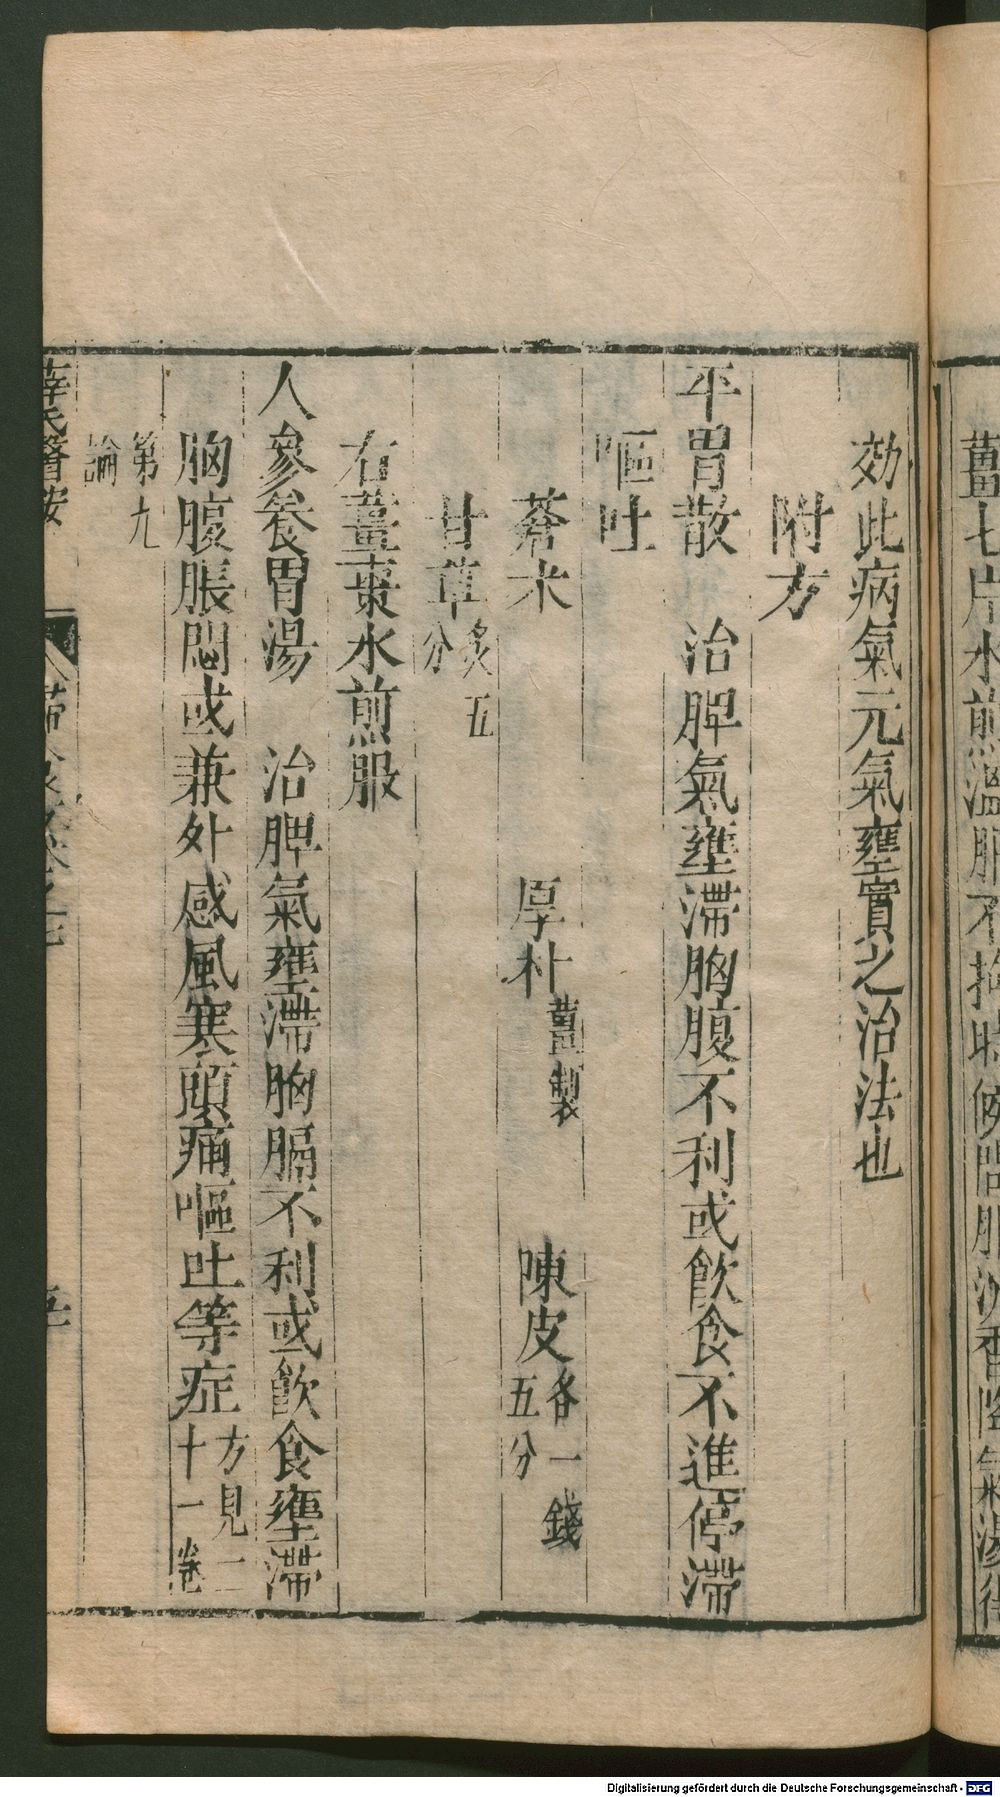 薑七片水煎溫服不拘時候間服沉香降氣湯往
効此病氣元氣壅實之治法也
附方
平胃散　治脾氣壅滯胸腹不利或飲食不進停滯
嘔吐
蒼朮　厚朴薑製　陳皮各一錢五分
甘草炙五分
右薑棗水煎服
人參養胃湯　治脾氣壅滯胸膈不利或飲食壅滯
胸腹脹悶或兼外感風寒頭痛嘔吐等症方見二十一卷
第九
論
薛氏醫按
五
Digitalisierung gefördert durch die Deutsche Forschungsgemeinschaft - DFG